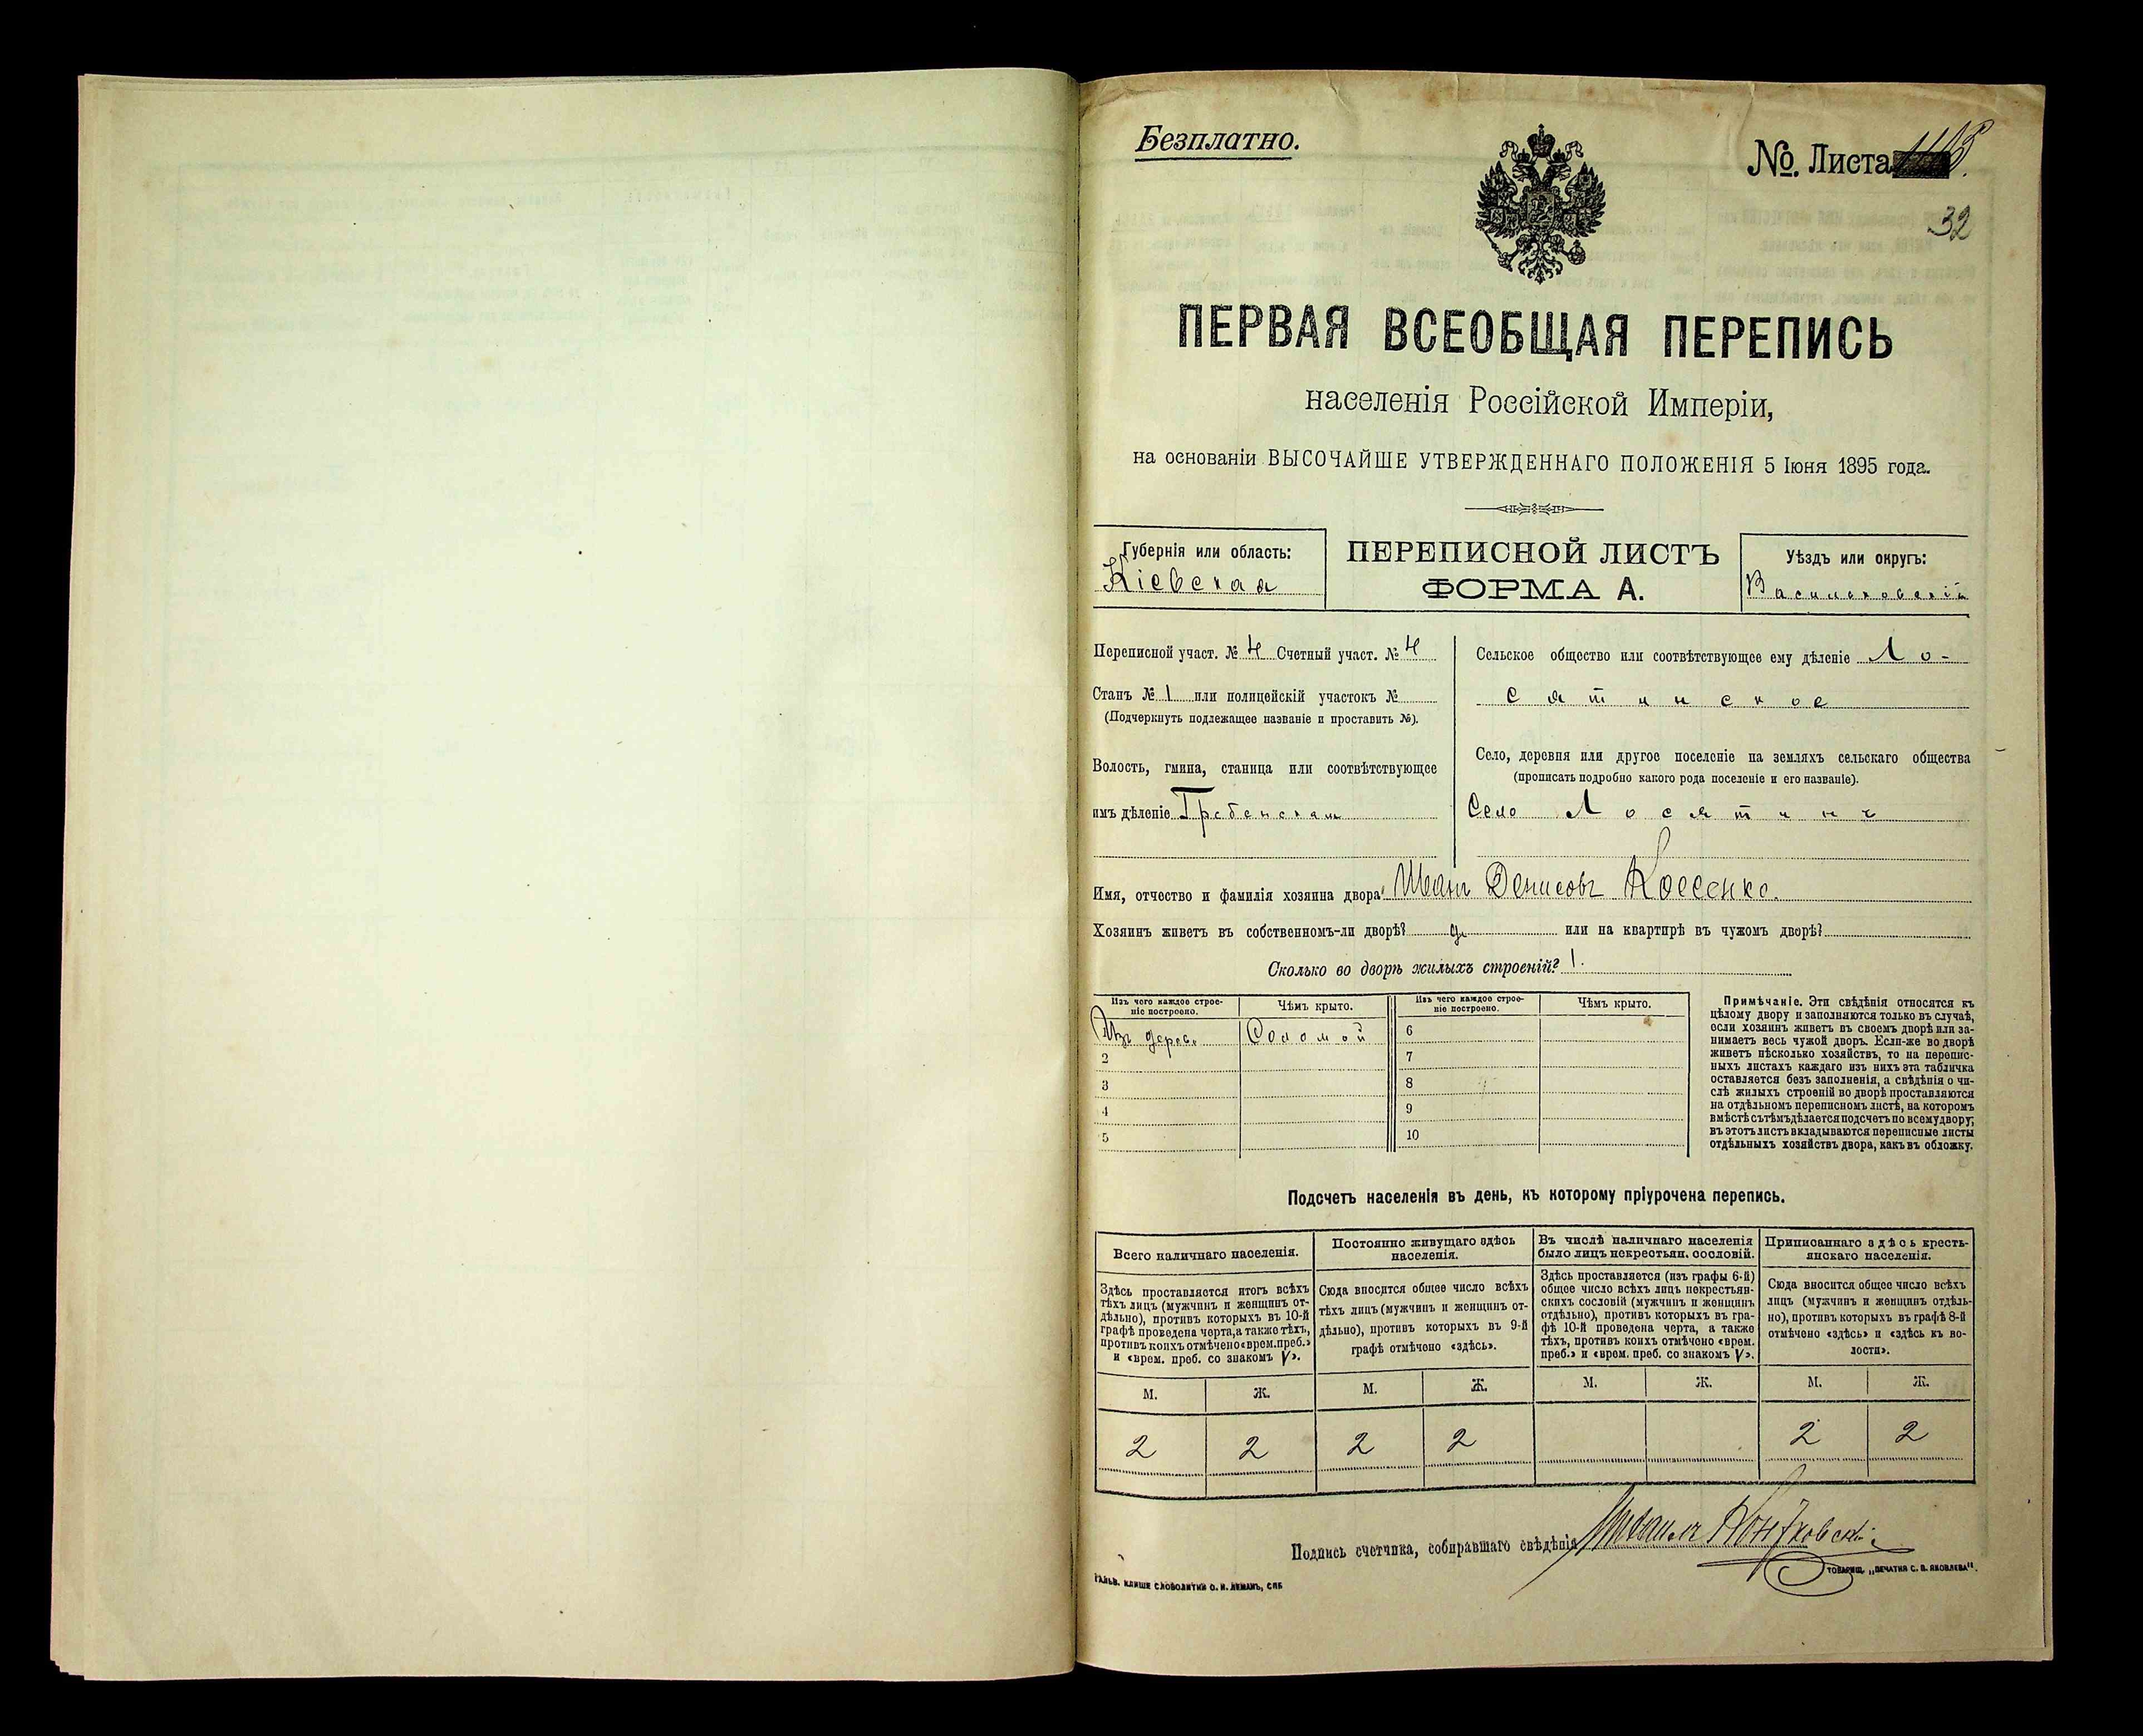 Безплатно.
№. Листа
32
ПЕРВАЯ ВСЕОБЩАЯ ПЕРЕПИСЬ
населенія Россійской Имперіи,
на основаніи ВЫСОЧАЙШЕ УТВЕРЖДЕННАГО ПОЛОЖЕНІЯ 5 Іюня 1895 года.
Губернія или область:
Кіевская
ПЕРЕПИСНОЙ ЛИСТЪ
ФОРМА А.
Уѣздъ или округъ:
Васильковскій
Переписной участ. № 4 Счетный участ. № 4
Станъ № 1 или полицейскій участокъ №
(Подчеркнуть подлежащее названіе и проставить №).
Волость, гмина, станица или соотвѣтствующее
имъ дѣленіе Гребенская
Сельское общество или соотвѣтствующее ему дѣленіе Ло-
сятинское
Село, деревня или другое поселеніе на земляхъ сельскаго общества
(прописать подробно какого рода поселеніе и его названіе).
Село Лосятинъ
Имя, отчество и фамилія хозяина двора: Иванъ Денисовъ
Хозяинъ живетъ въ собственномъ-ли дворѣ? или на квартирѣ въ чужомъ дворѣ?
Сколько во дворѣ жилыхъ строеній? 1.
Изъ чего каждое строе-
ніе построено.
Чѣмъ крыто.
Изъ чего каждое строе-
ніе построено.
Чѣмъ крыто.
Изъ дерев. Соломой
2
3
4
5
6
7
8
9
10
Примѣчаніе. Эти свѣдѣнія относятся къ
цѣлому двору и заполняются только въ случаѣ,
если хозяинъ живетъ въ своемъ дворѣ или за-
нимаетъ весь чужой дворъ. Если-же во дворѣ
живетъ нѣсколько хозяйствъ, то на перепис-
ныхъ листахъ каждаго изъ нихъ эта табличка
оставляется безъ заполненія, а свѣдѣнія о чи-
слѣ жилыхъ строеній во дворѣ проставляются
на отдѣльномъ переписномъ листѣ, на которомъ
вмѣстѣ съ тѣмъ дѣлается подсчетъ по всему двору;
въ этотъ листъ вкладываются переписные листы
отдѣльныхъ хозяйствъ двора, какъ въ обложку.
Подсчетъ населенія въ день, къ которому пріурочена перепись.
Всего наличнаго населенія.
Здѣсь проставляется итогъ всѣхъ
тѣхъ лицъ (мужчинъ и женщинъ от-
дѣльно), противъ которыхъ въ 10-й
графѣ проведена черта, а также тѣхъ,
противъ коихъ отмѣчено «врем. преб.»
и «врем. преб. со знакомъ V».
Постоянно живущаго здѣсь
населенія.
Сюда вносится общее число всѣхъ
тѣхъ лицъ (мужчинъ и женщинъ от-
дѣльно), противъ которыхъ въ 9-й
графѣ отмѣчено «здѣсь».
Въ числѣ наличнаго населенія
было лицъ некрестьян. сословій.
Здѣсь проставляется (изъ графы 6-й)
общее число всѣхъ лицъ некрестьян-
скихъ сословій (мужчинъ и женщинъ
отдѣльно), противъ которыхъ въ гра-
фѣ 10-й проведена черта, а также
тѣхъ, противъ коихъ отмѣчено «врем.
преб.» и «врем. преб. со знакомъ V».
Приписаннаго здѣсь кресть-
янскаго населенія.
Сюда вносится общее число всѣхъ
лицъ (мужчинъ и женщинъ отдѣль-
но), противъ которыхъ въ графѣ 8-й
отмѣчено «здѣсь» и «здѣсь къ во-
лости».
М. Ж. М. Ж. М. Ж. М. Ж.
2 2 2 2 2 2
Подпись счетчика, собиравшаго свѣдѣнія
ГАЛЬВ. КЛИШЕ СЛОВОЛИТНИ О. И. ЛЕМАНЪ, СПБ
ТОВАРИЩ. „ПЕЧАТНЯ С. П. ЯКОВЛЕВА“.